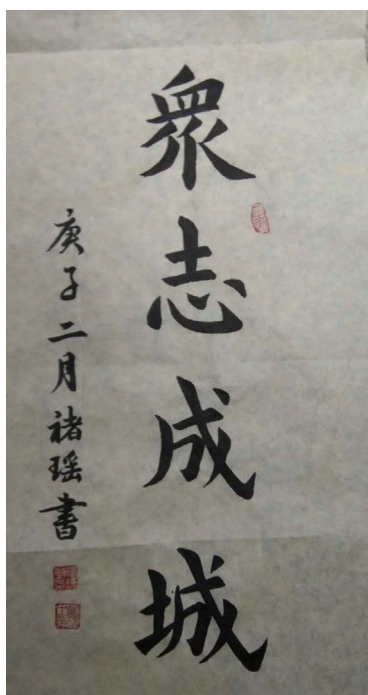 衆志成城
庚子二月褚瑶書